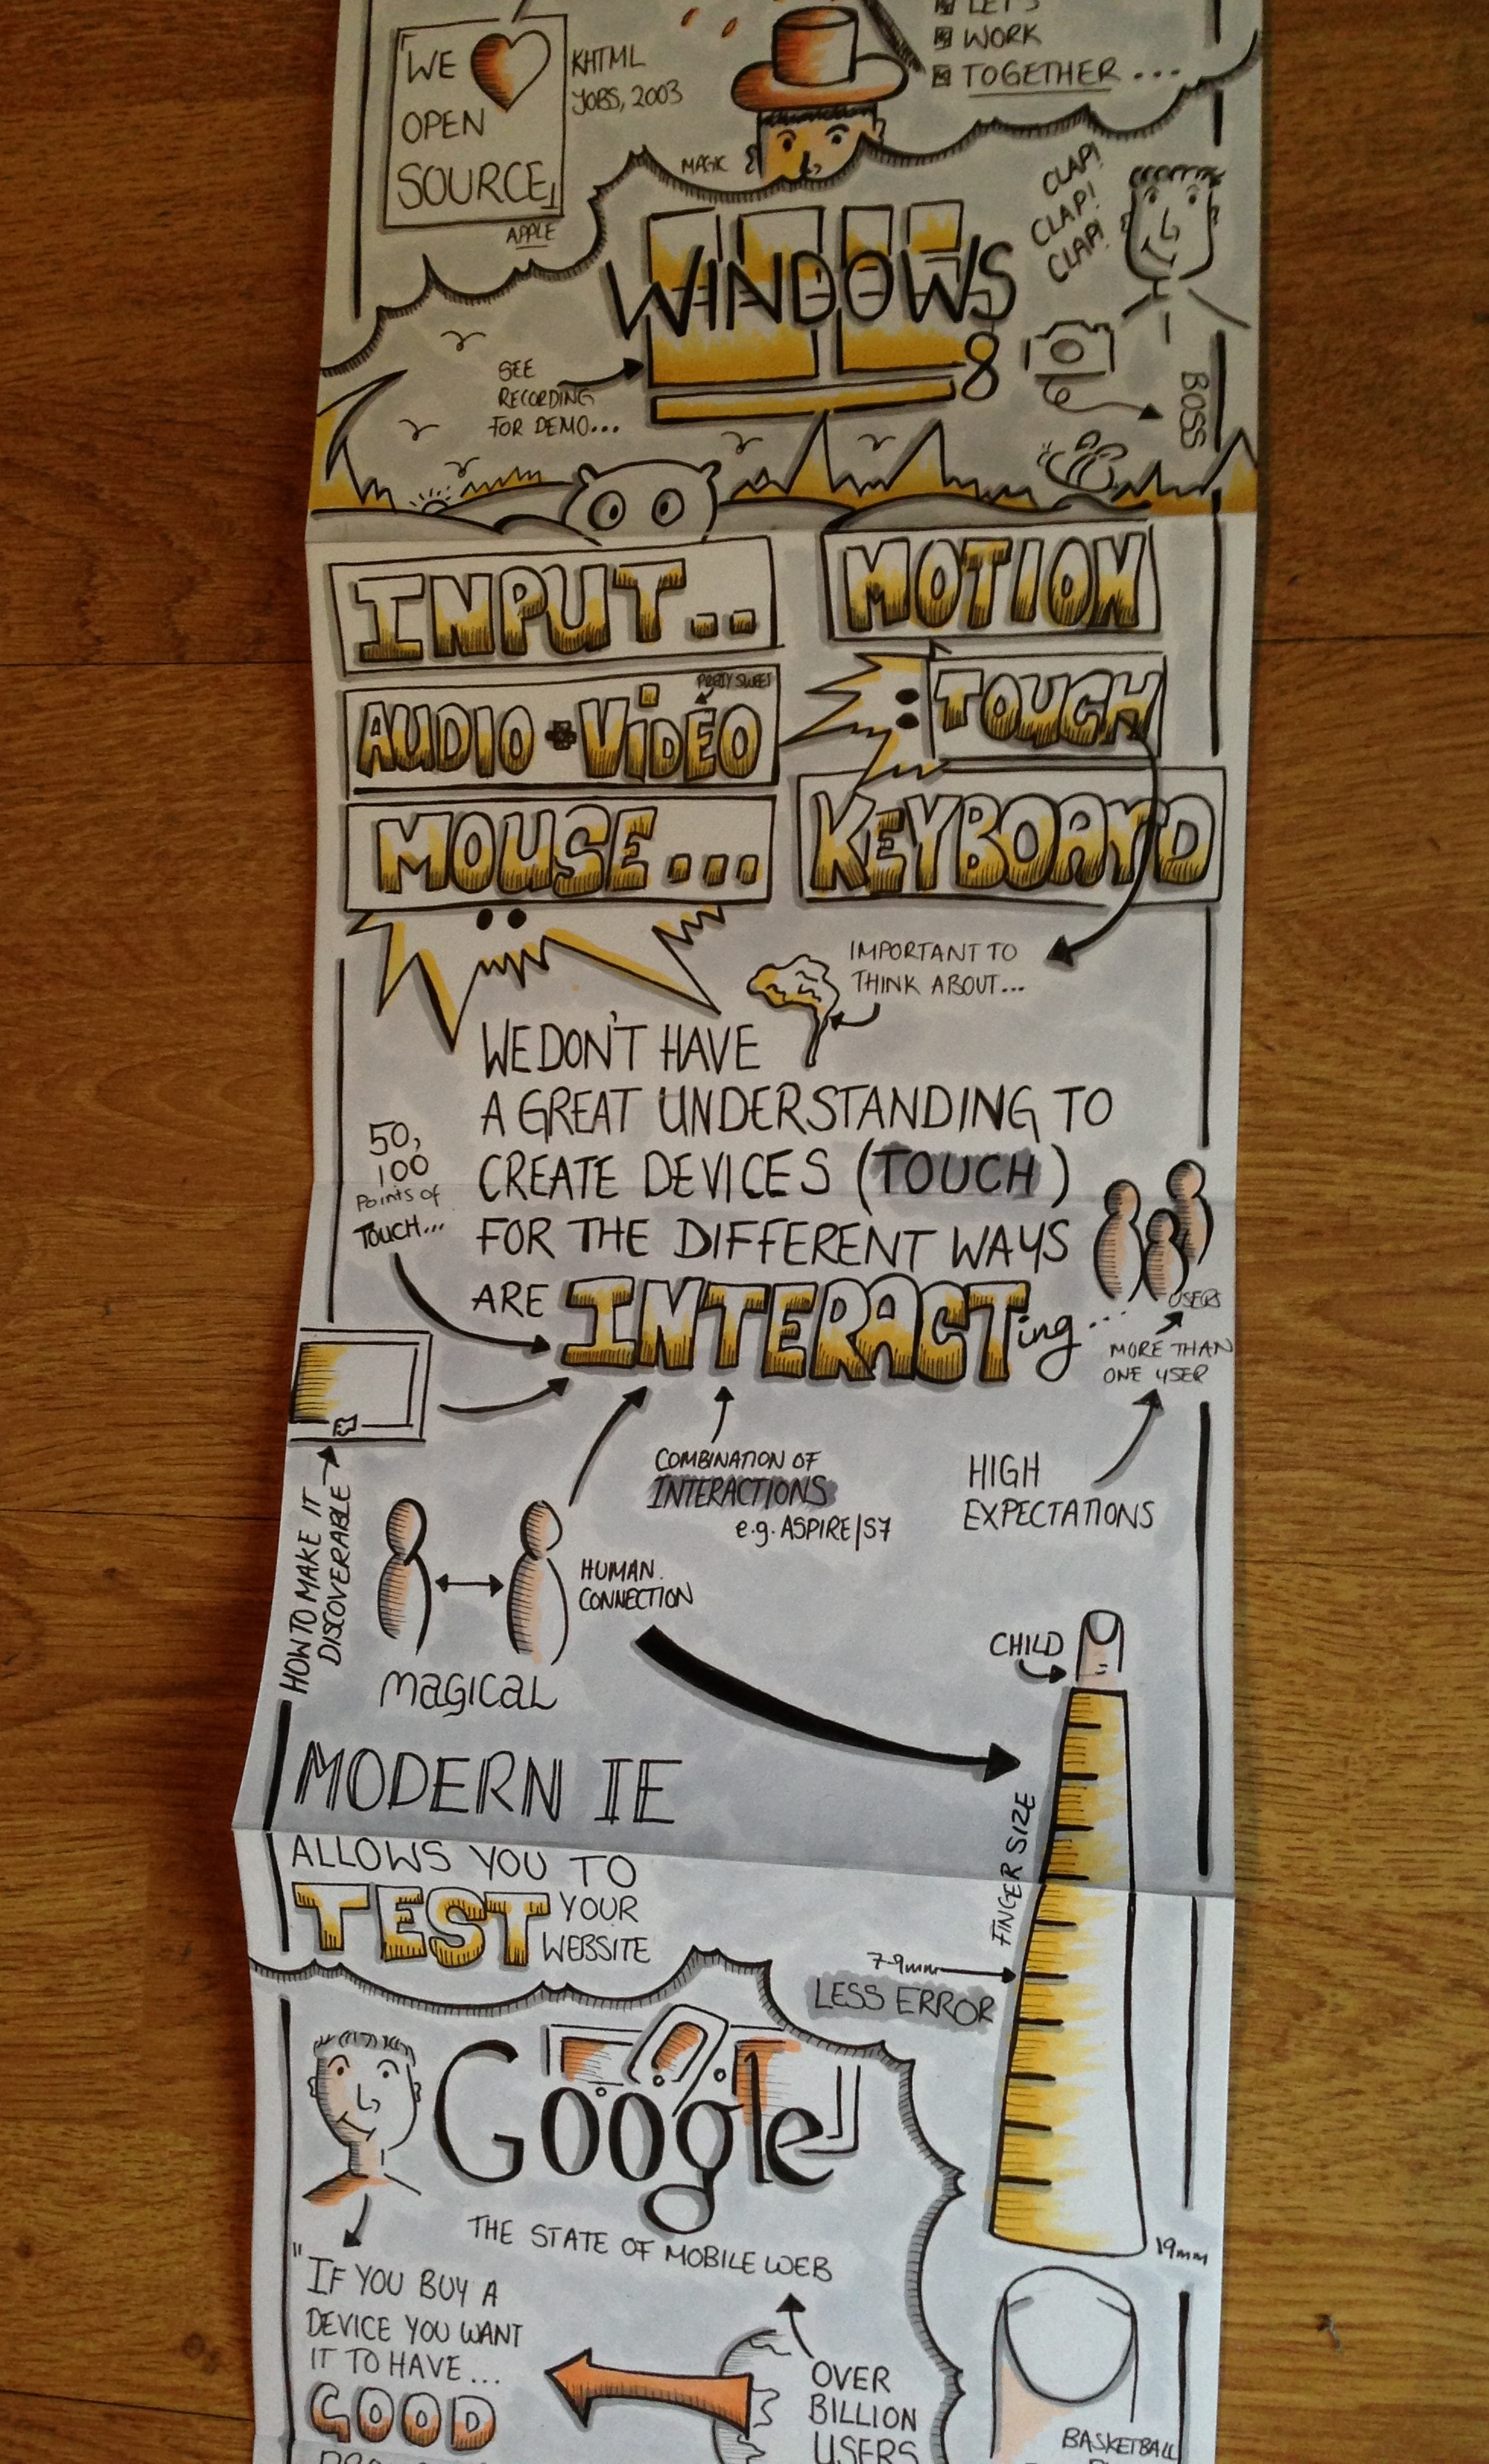 LET'S
WORK
TOGETHER...
「WE
OPEN
SOURCE」
APPLE
KHTML
JOBS, 2003
MAGIC
CLAP!
CLAP!
CLAP!
WINDOWS
8
SEE
RECORDING
FOR DEMO...
BOSS
INPUT..
MOTION
AUDIO + VIDEO
PRETTY SWEET
TOUCH
MOUSE...
KEYBOARD
IMPORTANT TO
THINK ABOUT...
WE DON'T HAVE
A GREAT UNDERSTANDING TO
CREATE DEVICES (TOUCH)
FOR THE DIFFERENT WAYS
ARE INTERACTing...
50,
100
Points of
TOUCH...
USERS
MORE THAN
ONE USER
HIGH
EXPECTATIONS
COMBINATION OF
INTERACTIONS
e.g. ASPIRE/S7
HOW TO MAKE IT
DISCOVERABLE
HUMAN
CONNECTION
MAGICAL
CHILD
FINGER SIZE
MODERN IE
ALLOWS YOU TO
TEST YOUR
WEBSITE
7-9mm
LESS ERROR
19mm
Google
THE STATE OF MOBILE WEB
"IF YOU BUY A
DEVICE YOU WANT
IT TO HAVE...
GOOD
OVER
BILLION
USERS
BASKETBALL